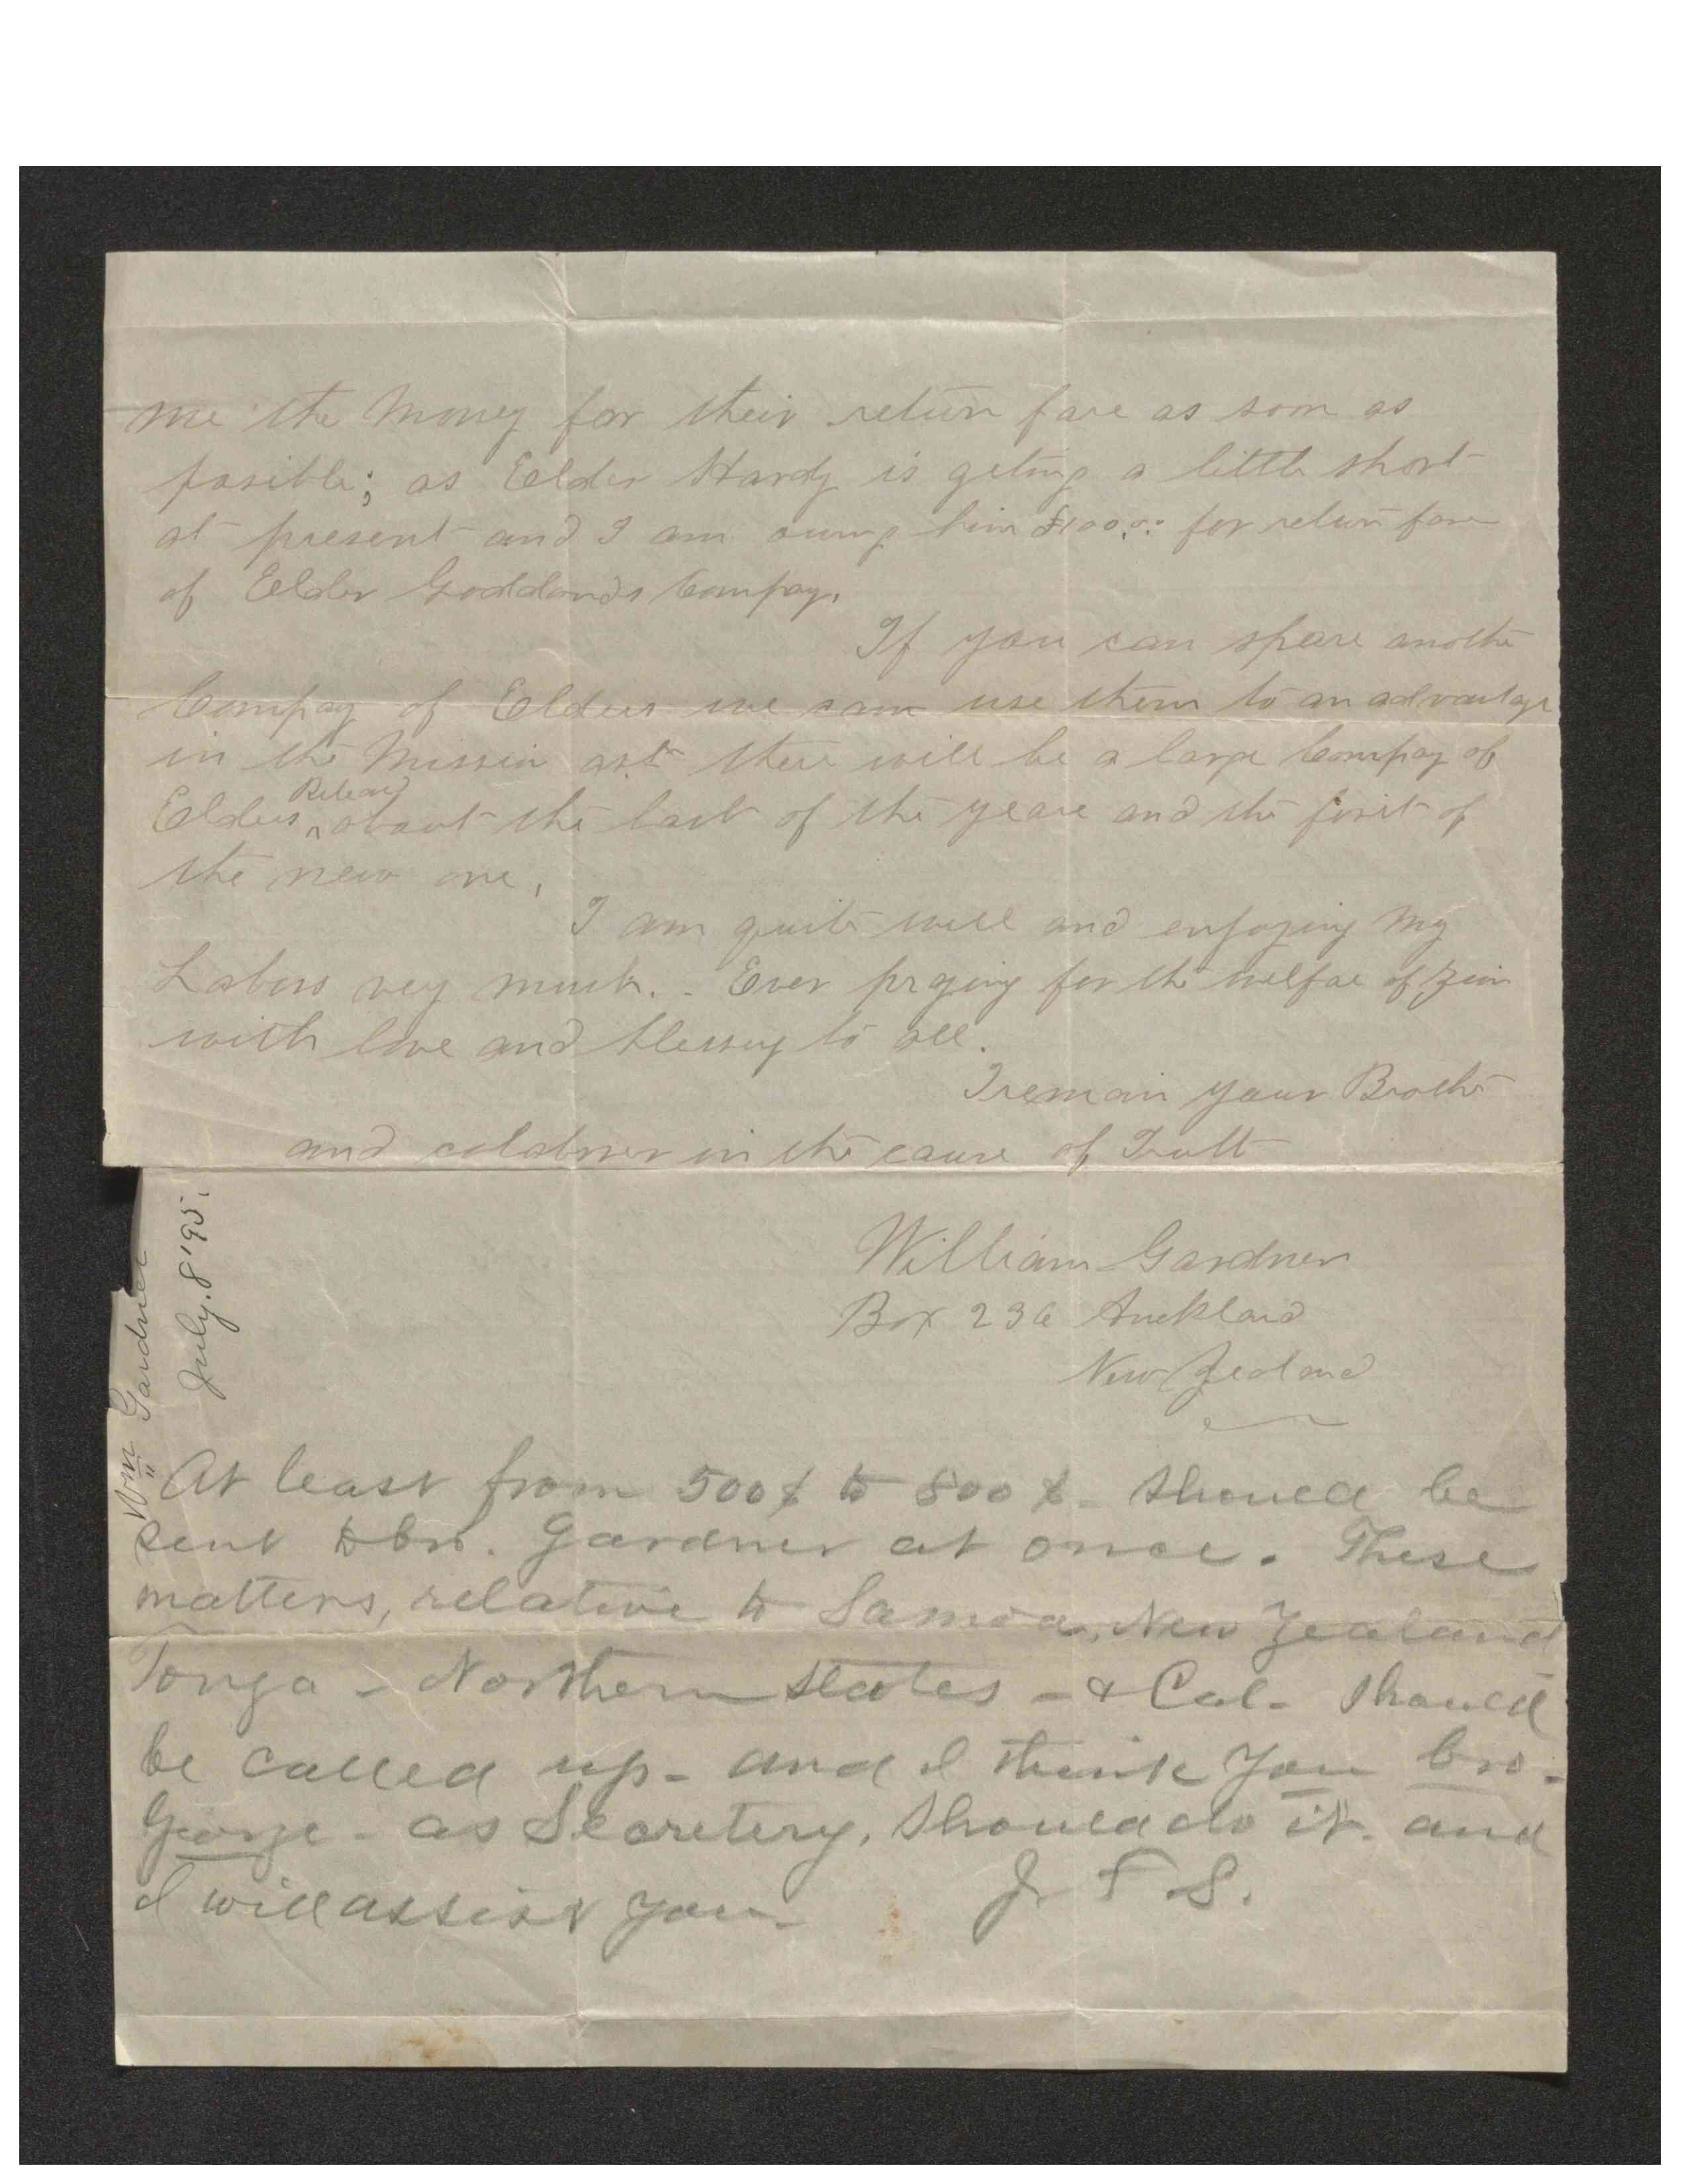 me the Money for their return fare as soon as
posible; as Elder Hardy is geting a little short
at present and I am owing him £100.°.° for return fare
of Elder Goddards Compay.
If you can spare anothe
Compay of Elders we can use them to an advantage
in the Missin as there will be a large Compay of
Elders Releasd about the last of the yeare and the first of
the new one.
I am quite well and enjoying My
Labors vey much. - Ever praying for the welfae of Zion
with love and blessing to all.
I remain your Brothe
and colabrer in the cause of Truth
William Gardner
Box 236 Auckland
New Zealand
Wm Gardner
July. 8 '95.
At least from 500$ to 800$ - should be
sent to bro. Gardner at once. These
matters, relative to Samoa, New Zealand
Tonga - Northern States - & Cal - should
be called up - and I think you bro -
George - as Secretery, should do it. and
I will assist you - J. F. S.